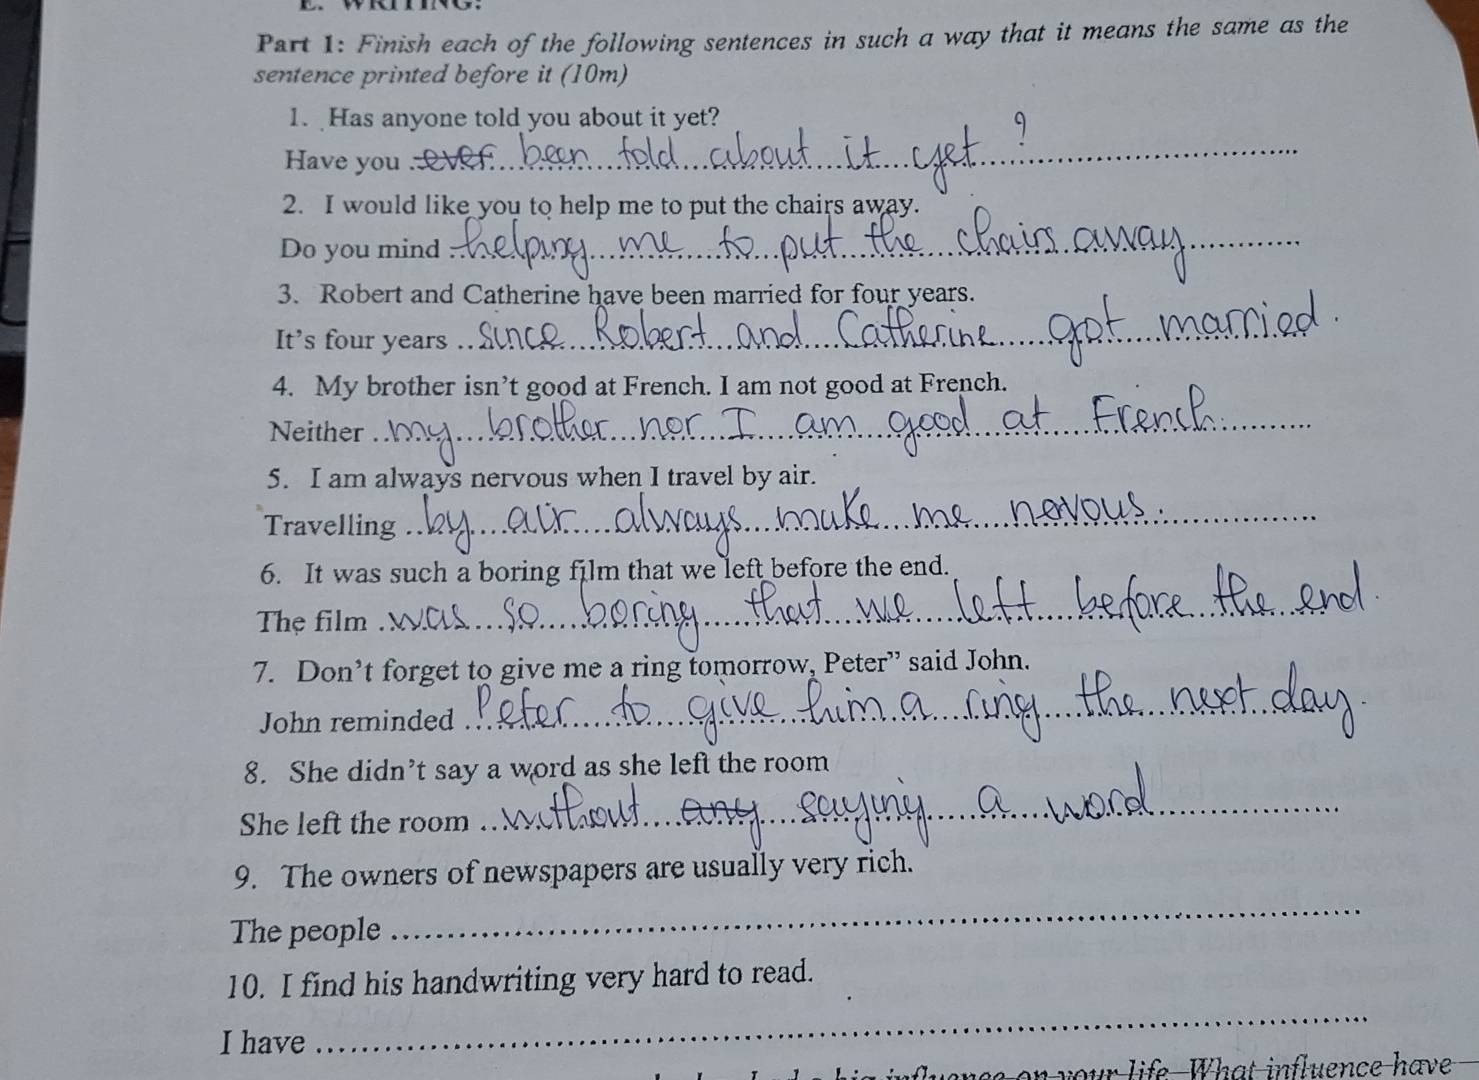 E. WRITING:
Part 1: Finish each of the following sentences in such a way that it means the same as the
sentence printed before it (10m)
1. Has anyone told you about it yet?
Have you ever been told about it yet ?
2. I would like you to help me to put the chairs away.
Do you mind helping me to put the chairs away
3. Robert and Catherine have been married for four years.
It's four years since Robert and Catherine got married.
4. My brother isn't good at French. I am not good at French.
Neither my brother nor I am good at French.
5. I am always nervous when I travel by air.
Travelling by air always make me nevous.
6. It was such a boring film that we left before the end.
The film was so boring that we left before the end.
7. Don't forget to give me a ring tomorrow, Peter" said John.
John reminded Peter to give him a ring the next day.
8. She didn't say a word as she left the room
She left the room without any saying a word
9. The owners of newspapers are usually very rich.
The people
10. I find his handwriting very hard to read.
I have
his influence on your life What influence have